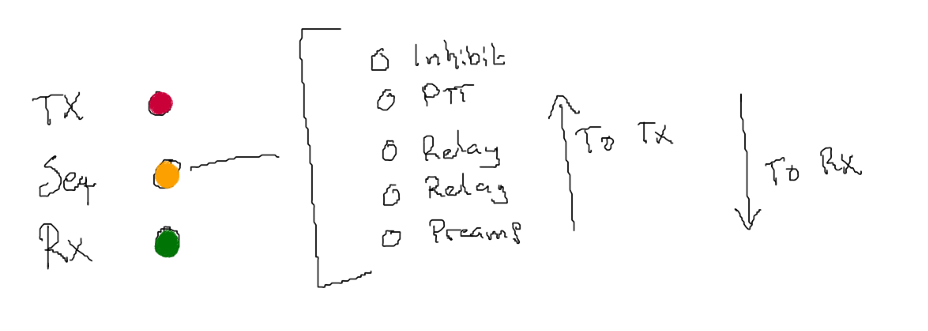 TX
Seq
Rx
Inhibit
PTT
Relay
Relay
Preamp
To TX
To RX